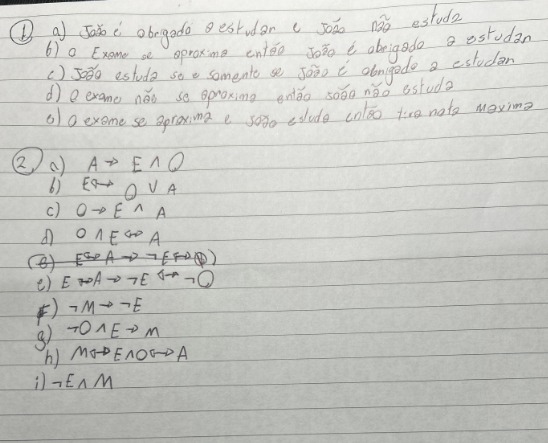 ① a) João é obrigado a estudar e João não estuda
b) O Exame se aproxima então João é obrigado a estudar
c) João estuda se e somente se João é obrigado a estudar
d) O exame não se aproxima então João não estuda
e) O exame se aproxima e João estuda então tira nota maxima
② a) A → E ∧ O
b) E ↔ O ∨ A
c) O → E ∧ A
d) O ∧ E ↔ A
e) E ↔ A → ¬E ↔ ¬O
f) ¬M → ¬E
g) ¬O ∧ E → M
h) M ↔ E ∧ O ↔ A
i) ¬E ∧ M